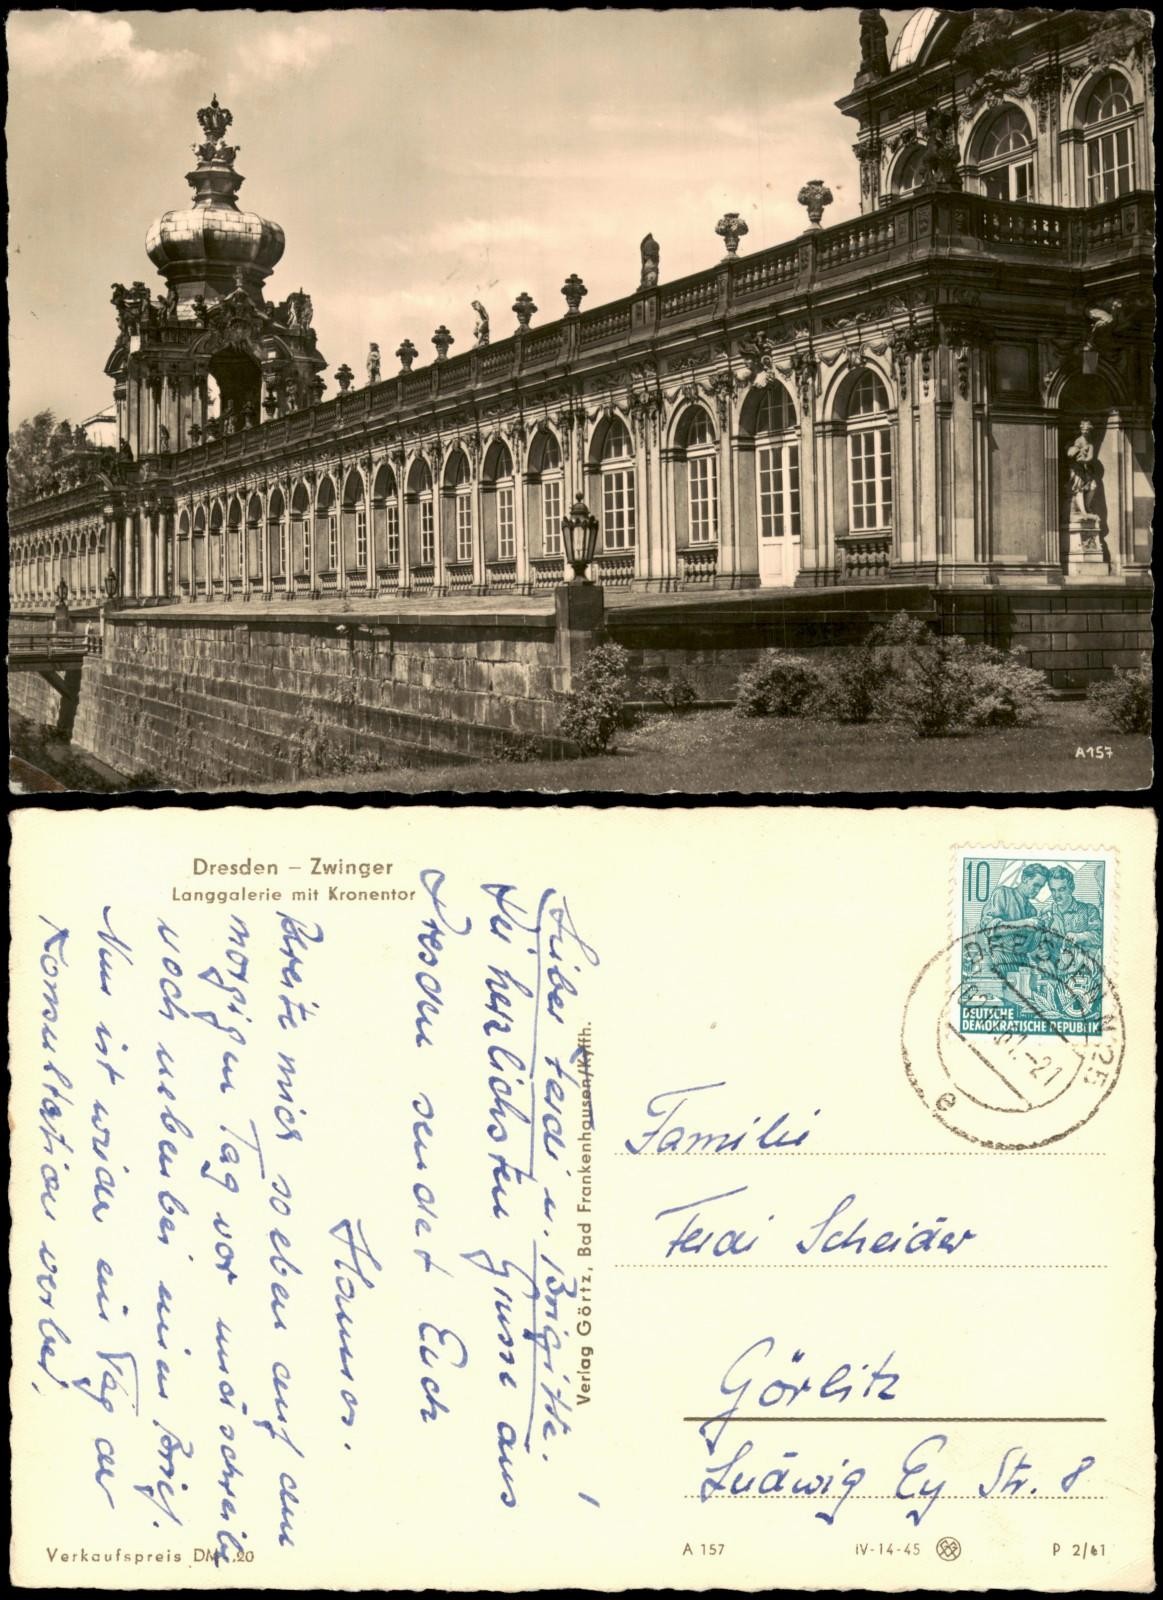 A 157
Dresden – Zwinger
Langgalerie mit Kronentor
Lieber Ferdi u. Brigitte.
Die herzlichsten Grüsse aus
Dresden sendet Euch
Hannes.
Breite mich soeben auf den
morgigen Tag vor und schreibe
noch nebenbei einen Brief.
Nun ist wieder ein Tag der
Konsultation vorbei.
Verlag Görtz, Bad Frankenhausen/Kyffh.
10
DEUTSCHE
DEMOKRATISCHE REPUBLIK
DRESDEN N 25
e
Familie
Ferdi Scheider
Görlitz
Ludwig Ey Str. 8
Verkaufspreis DM .20
A 157
IV-14-45
P 2/61